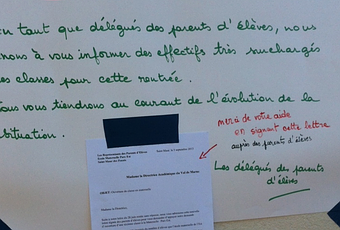 En tant que délégués des parents d'élèves, nous
tenons à vous informer des effectifs très surchargés
des classes pour cette rentrée.
Nous vous tiendrons au courant de l'évolution de la
situation.
merci de votre aide
en signant cette lettre
auprès des parents d'élèves
Les délégués des parents
d'élèves
Les Représentants des Parents d'Elèves
Madame la Directrice Académique du Val de Marne
Madame la Directrice,